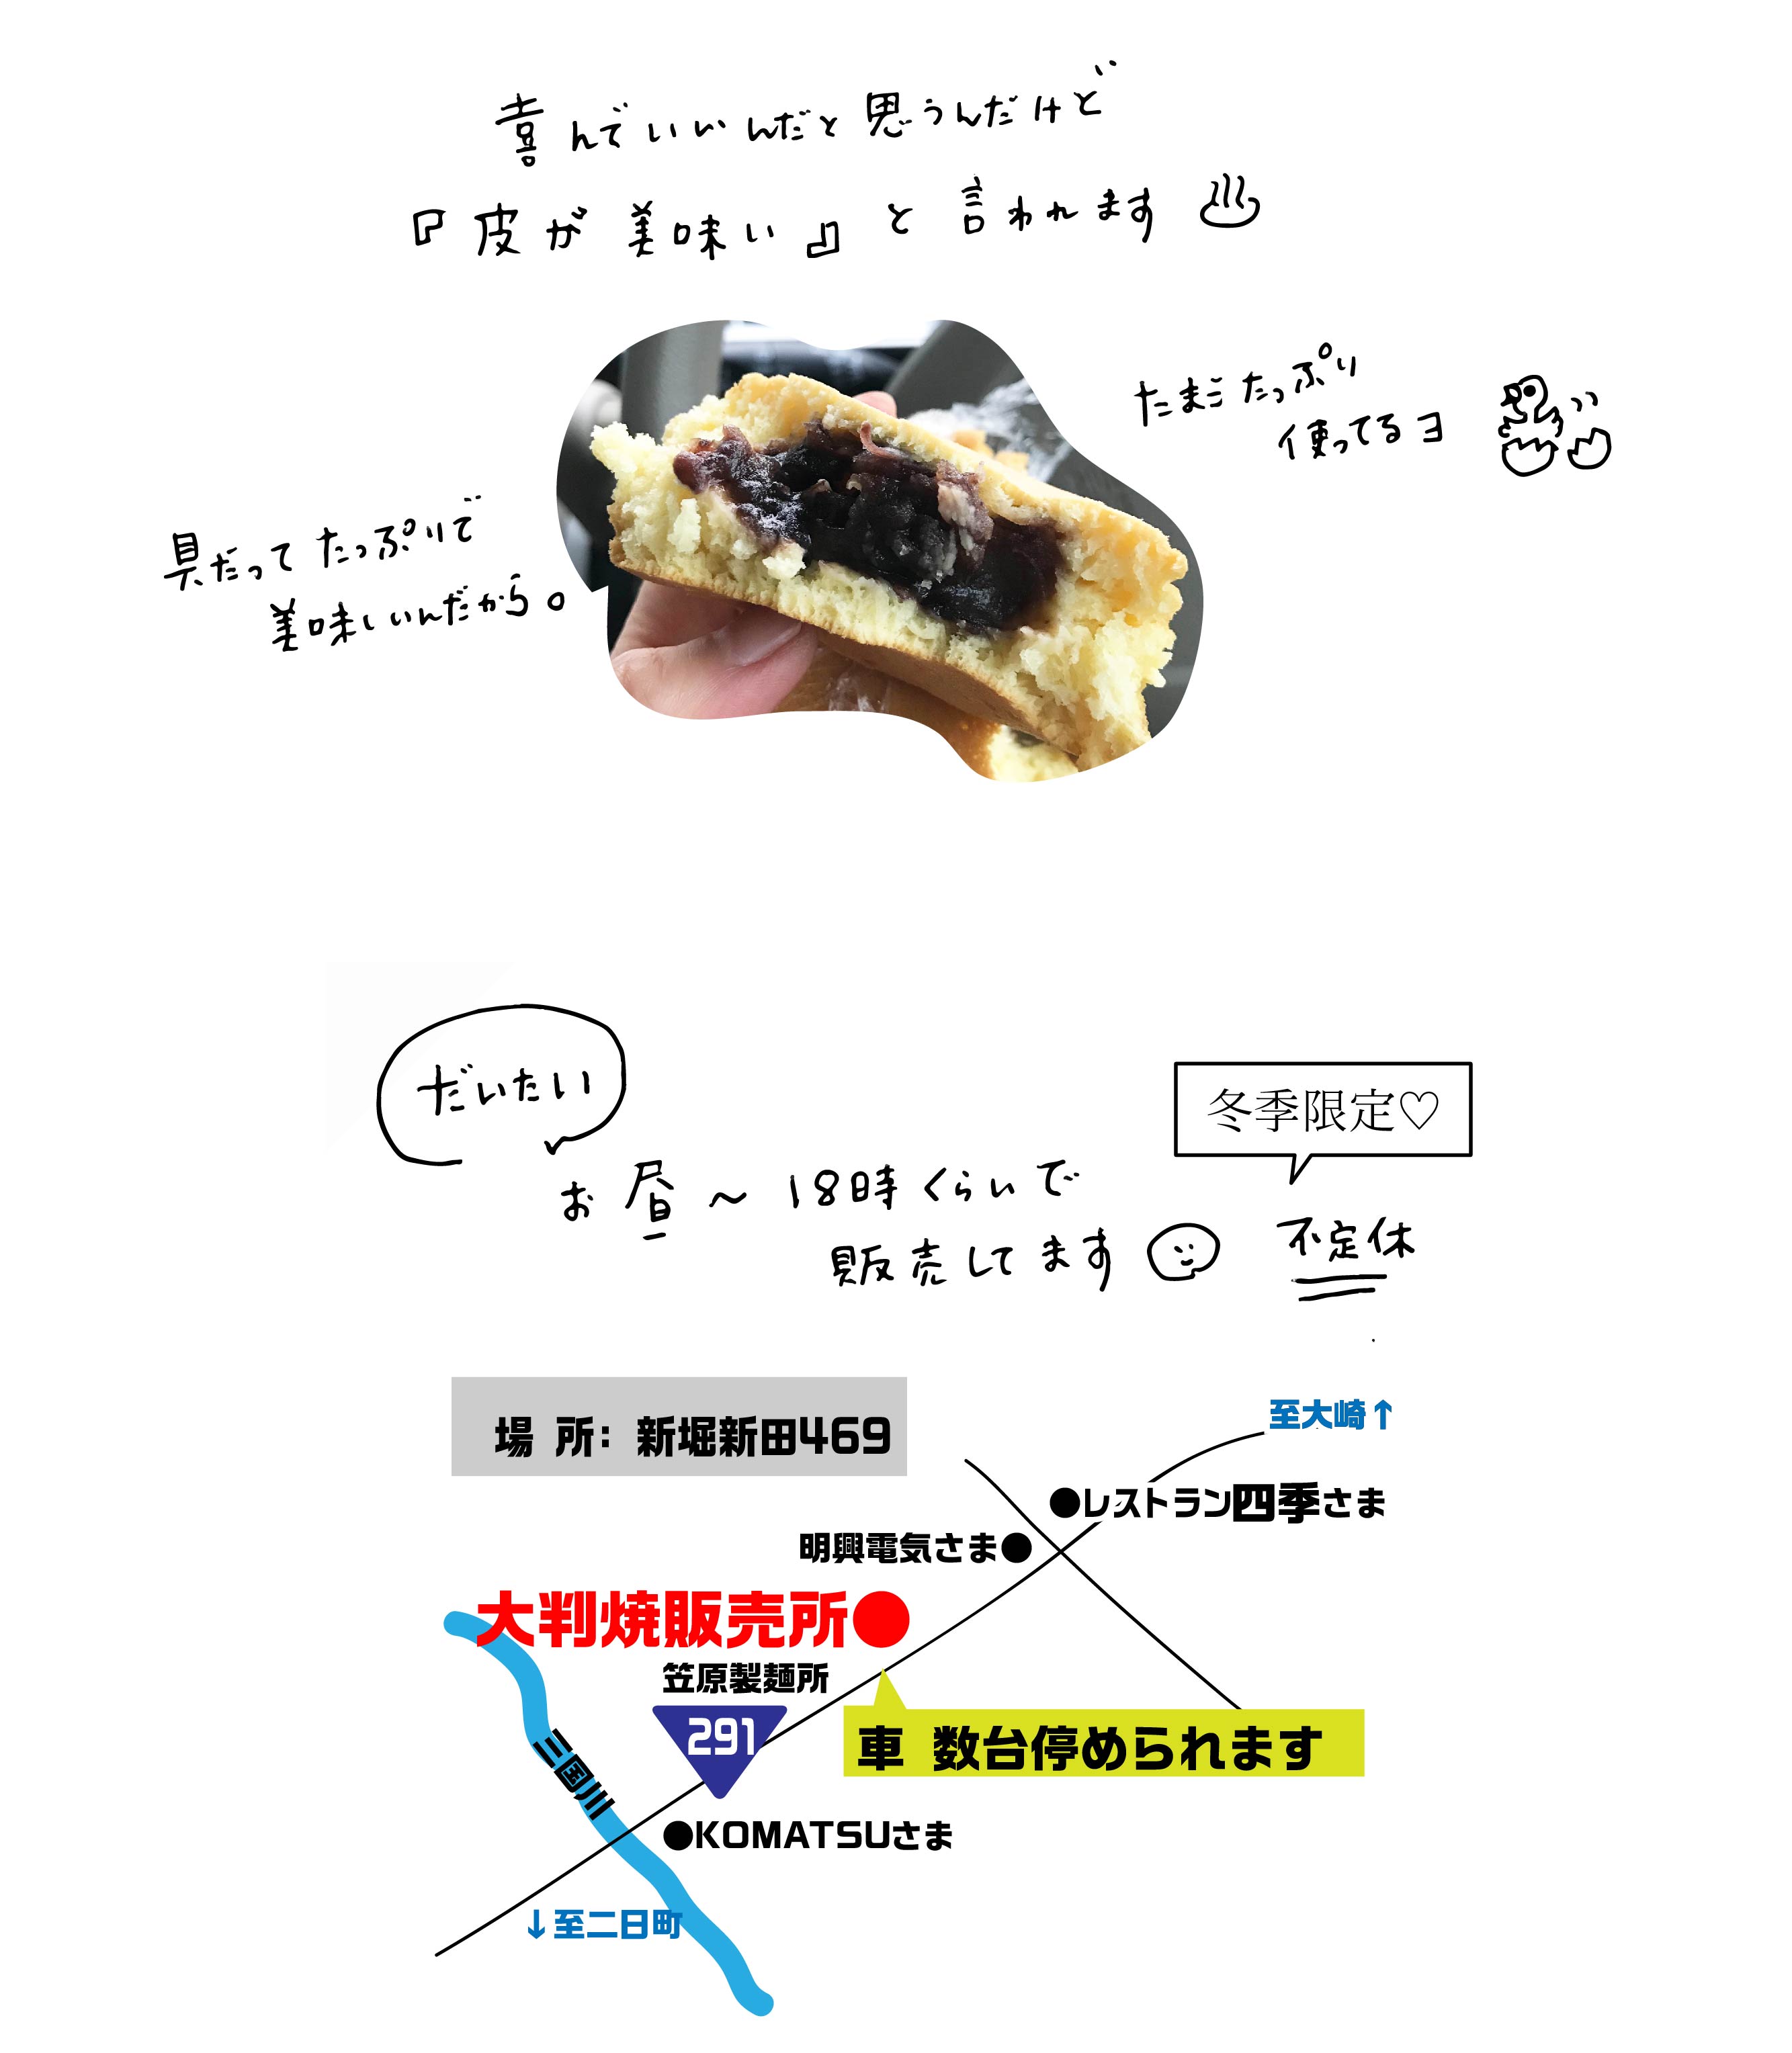 喜んでいいんだと思うんだけど
『皮が美味い』と言われます
たまごたっぷり
使ってるヨ
具だってたっぷりで
美味しいんだから。
だいたい
冬季限定♡
お昼～18時くらいで
販売してます
不定休
場 所: 新堀新田469
至大崎↑
●レストラン四季さま
明興電気さま●
大判焼販売所●
笠原製麺所
291
車 数台停められます
三国川
●KOMATSUさま
↓至二日町